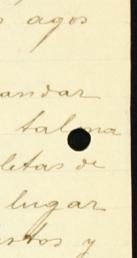 s agos
andar
letas de
lugar
stos y